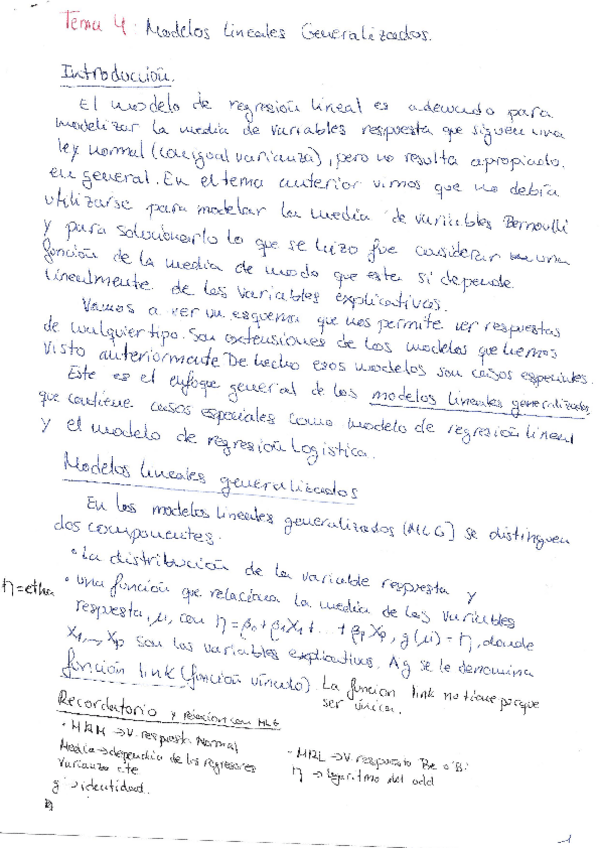 Tema 4: Modelos Lineales Generalizados.
Introducción.
El modelo de regresión lineal es adecuado para
modelizar la media de variables respuesta que siguen una
ley normal (con igual varianza), pero no resulta apropiado
en general. En el tema anterior vimos que no debía
utilizarse para modelar la media de variables Bernoulli
y para solucionarlo lo que se hizo fue considerar una
función de la media de modo que esta si depende
linealmente de las variables explicativas.
Vamos a ver un esquema que nos permite ver respuestas
de cualquier tipo. Son extensiones de los modelos que hemos
visto anteriormente. De hecho esos modelos son casos especiales.
Este es el enfoque general de los modelos lineales generalizados
que contiene casos especiales como modelo de regresión lineal
y el modelo de regresión logística.
Modelos lineales generalizados
En los modelos lineales generalizados (MLG) se distinguen
dos componentes:
· La distribución de la variable respuesta y
η = etha · una función que relaciona la media de las variables
respuesta, μ, con η = β0 + β1X1 + ... + βpXp, g(μ) = η, donde
X1, ..., Xp son las variables explicativas. A g se le denomina
función link (función vínculo). La función link no tiene porque
ser única.
Recordatorio y relación con MLG
· MRM → V. respuesta Normal
Media → dependía de los regresores
Varianza cte
g → identidad.
· MRL → V. respuesta Be o Bi
η → logaritmo del odd
1